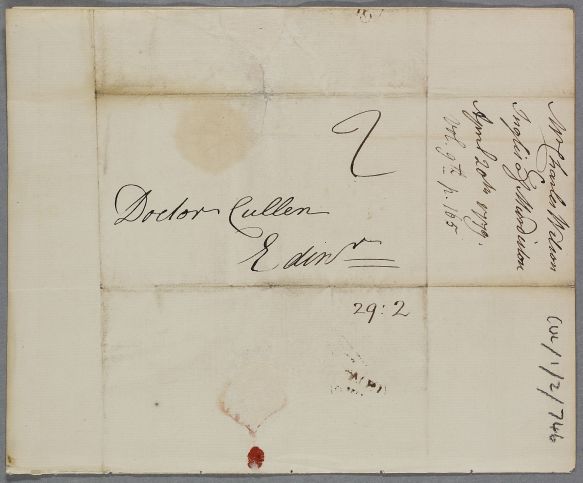 2
Doctor Cullen
Edinr
29: 2
Mr Charles Wilson
Inglis of Murdiston
April 20th 1779.
Vol. 9th p. 165
CUL/1/2/746